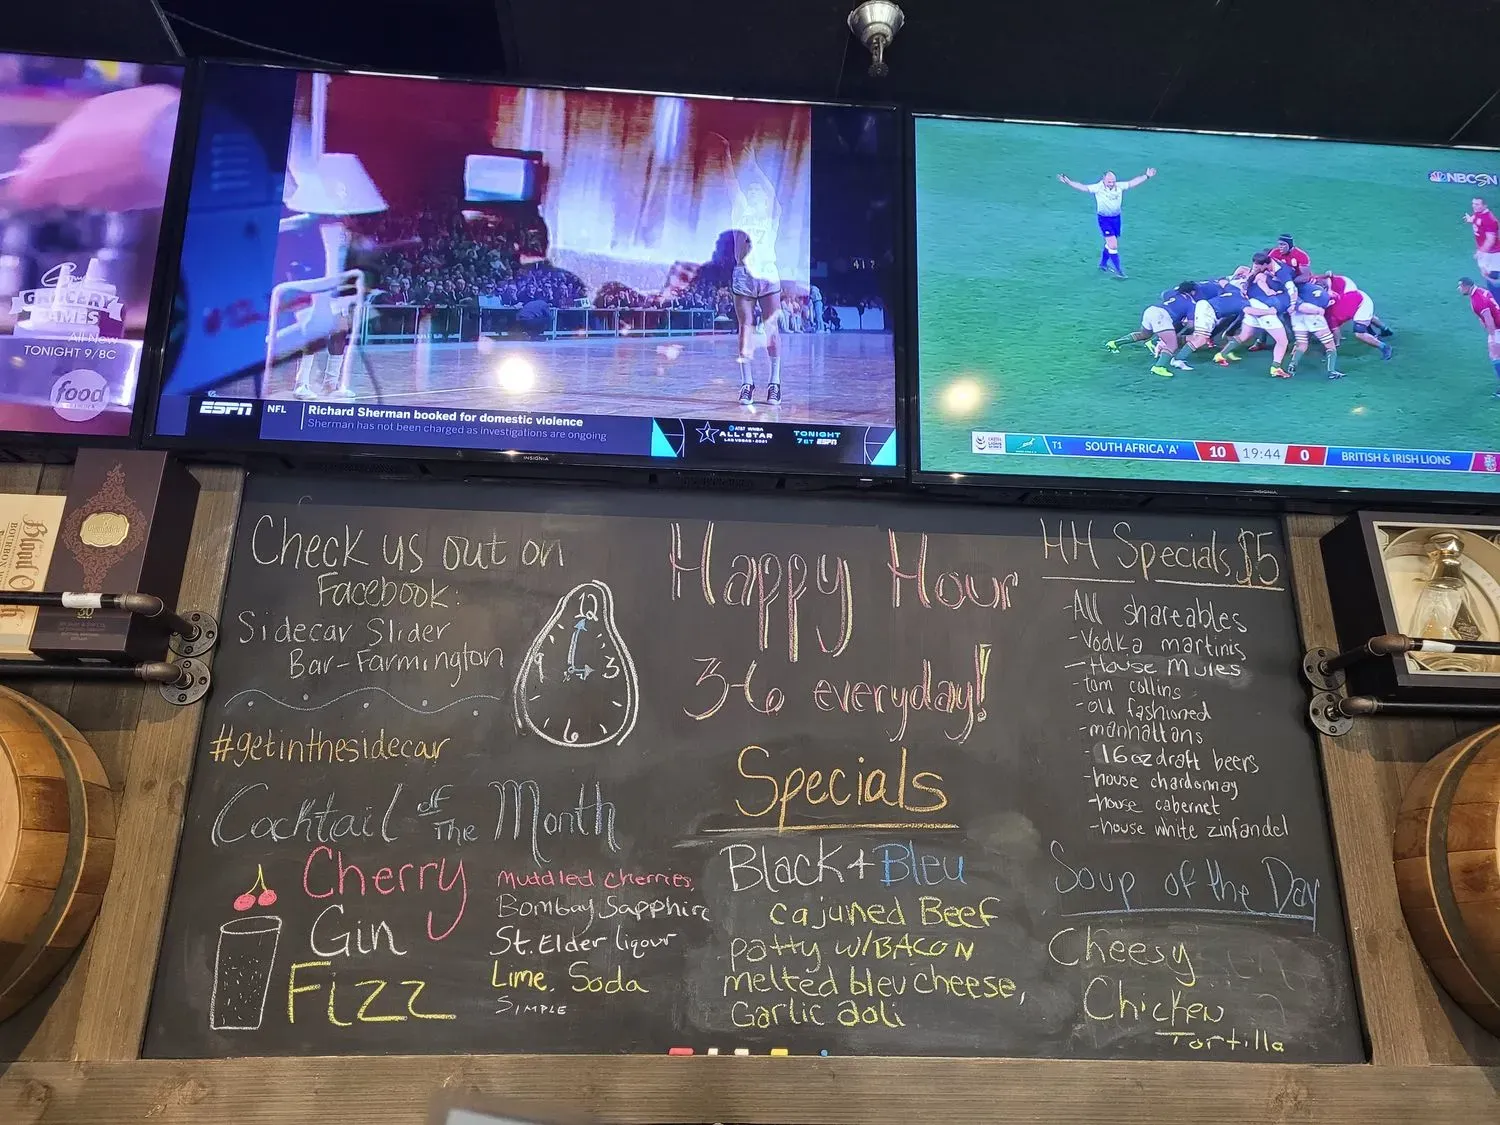 GROCERY
GAMES
All-New
TONIGHT 9/8C
food
ESPN
NFL
Richard Sherman booked for domestic violence
Sherman has not been charged as investigations are ongoing
AT&T WNBA
ALL-STAR
LAS VEGAS 2021
TONIGHT
7 ET ESPN
NBCSN
T1 SOUTH AFRICA 'A' 10 19:44 0 BRITISH & IRISH LIONS
INSIGNIA
INSIGNIA
Check us out on
Facebook:
Sidecar Slider
Bar-Farmington
#getinthesidecar
12
9 3
6
Cocktail of The Month
Cherry
Gin
Fizz
Muddled cherries,
Bombay Sapphire
St. Elder liqour
Lime, Soda
SIMPLE
Happy Hour
3-6 everyday!
Specials
Black + Bleu
cajuned Beef
patty w/BACON
melted bleu cheese,
Garlic aoli
HH Specials $5
-All shareables
-Vodka martinis
-House Mules
-tom collins
-old fashioned
-manhattans
-16oz draft beers
-house chardonnay
-house cabernet
-house white zinfandel
Soup of the Day
Cheesy
Chicken
Tortilla